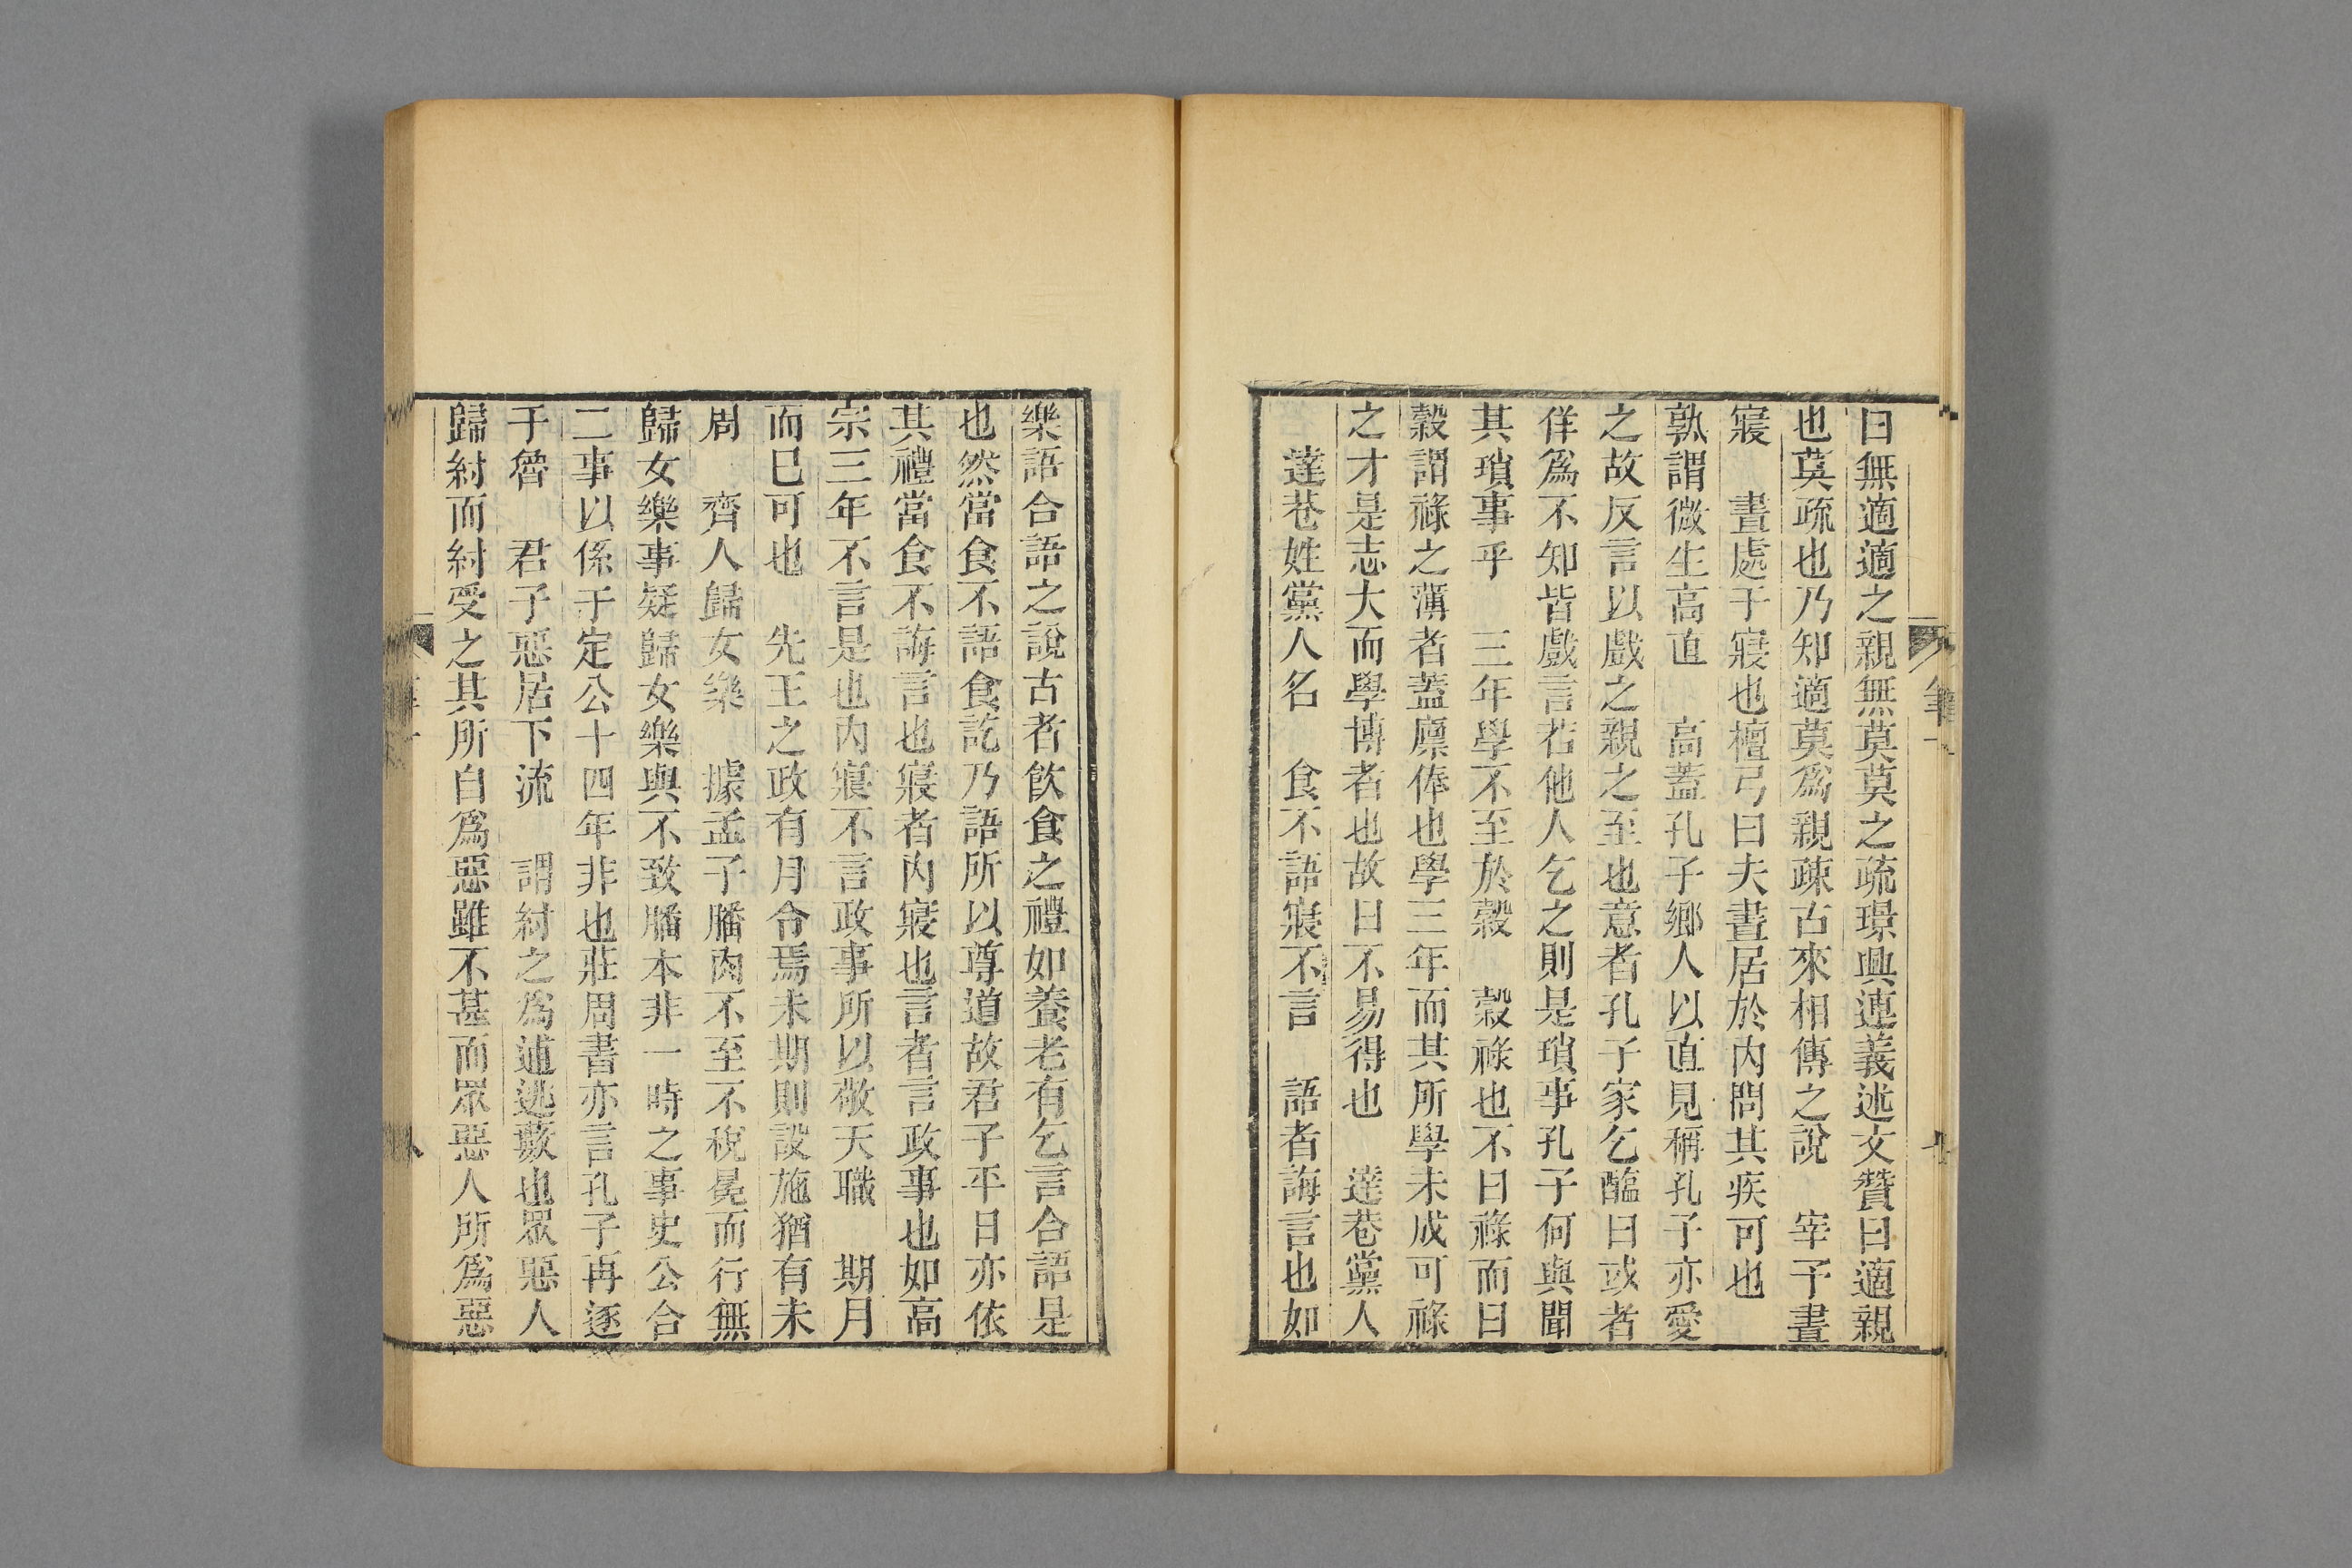 曰無適適之親無莫莫之疏璟興連義述文贊曰適親
也莫疏也乃知適莫爲親疎古來相傳之說　宰予晝
寢　晝處于寢也檀弓曰夫晝居於内問其疾可也
孰謂微生高直　高蓋孔子鄉人以直見稱孔子亦愛
之故反言以戲之親之至也意者孔子家乞醯曰或者
佯爲不知皆戲言若他人乞之則是瑣事孔子何與聞
其瑣事乎　三年學不至於穀　穀祿也不曰祿而曰
穀謂祿之薄者蓋廪俸也學三年而其所學未成可祿
之才是志大而學博者也故曰不易得也　達巷黨人
達巷姓黨人名　食不語寢不言　語者誨言也如
樂語合語之說古者飲食之禮如養老有乞言合語是
也然當食不語食訖乃語所以尊道故君子平日亦依
其禮當食不誨言也寢者内寢也言者言政事也如高
宗三年不言是也内寢不言政事所以敬天職　期月
而已可也　先王之政有月令焉未期則設施猶有未
周　齊人歸女樂　據孟子膰肉不至不稅冕而行無
歸女樂事疑歸女樂與不致膰本非一時之事史公合
二事以係于定公十四年非也莊周書亦言孔子再逐
于魯　君子惡居下流　謂紂之爲逋逃藪也眾惡人
歸紂而紂受之其所自爲惡雖不甚而眾惡人所爲惡